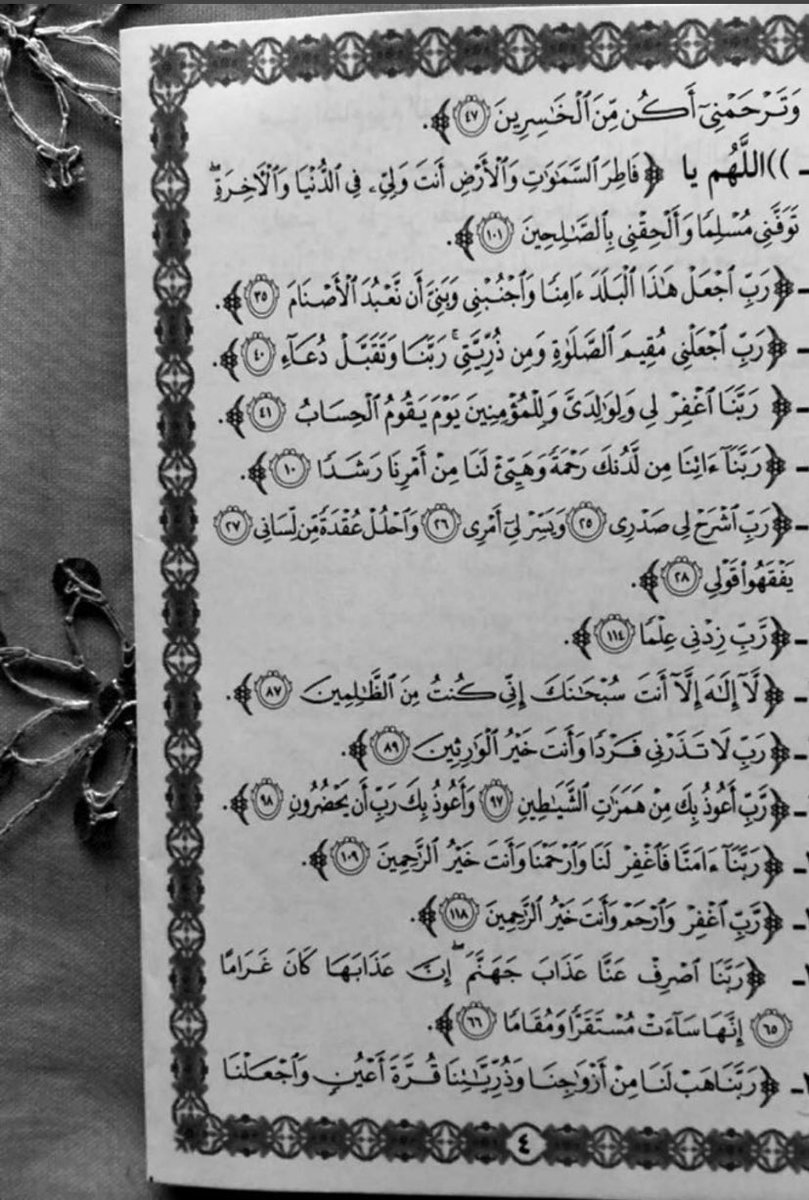 وَتَرْحَمْنِىٓ أَكُن مِّنَ ٱلْخَٰسِرِينَ ٤٧ ﴾.
ـ ))اللَّهُم يا ﴿ فَاطِرَ ٱلسَّمَٰوَٰتِ وَٱلْأَرْضِ أَنتَ وَلِىِّۦ فِى ٱلدُّنْيَا وَٱلْءَاخِرَةِۖ
تَوَفَّنِى مُسْلِمًا وَأَلْحِقْنِى بِٱلصَّٰلِحِينَ ١٠١ ﴾.
ـ﴿ رَبِّ ٱجْعَلْ هَٰذَا ٱلْبَلَدَ ءَامِنًا وَٱجْنُبْنِى وَبَنِىَّ أَن نَّعْبُدَ ٱلْأَصْنَامَ ٣٥ ﴾.
ـ﴿ رَبِّ ٱجْعَلْنِى مُقِيمَ ٱلصَّلَوٰةِ وَمِن ذُرِّيَّتِىۚ رَبَّنَا وَتَقَبَّلْ دُعَآءِ ٤٠ ﴾.
ـ﴿ رَبَّنَا ٱغْفِرْ لِى وَلِوَٰلِدَىَّ وَلِلْمُؤْمِنِينَ يَوْمَ يَقُومُ ٱلْحِسَابُ ٤١ ﴾.
ـ﴿ رَبَّنَآ ءَاتِنَا مِن لَّدُنكَ رَحْمَةً وَهَيِّئْ لَنَا مِنْ أَمْرِنَا رَشَدًا ١٠ ﴾.
ـ﴿ رَبِّ ٱشْرَحْ لِى صَدْرِى ٢٥ وَيَسِّرْ لِىٓ أَمْرِى ٢٦ وَٱحْلُلْ عُقْدَةً مِّن لِّسَانِى ٢٧
يَفْقَهُوا۟ قَوْلِى ٢٨ ﴾.
ـ﴿ رَّبِّ زِدْنِى عِلْمًا ١١٤ ﴾.
ـ﴿ لَّآ إِلَٰهَ إِلَّآ أَنتَ سُبْحَٰنَكَ إِنِّى كُنتُ مِنَ ٱلظَّٰلِمِينَ ٨٧ ﴾.
ـ﴿ رَبِّ لَا تَذَرْنِى فَرْدًا وَأَنتَ خَيْرُ ٱلْوَٰرِثِينَ ٨٩ ﴾.
ـ﴿ رَّبِّ أَعُوذُ بِكَ مِنْ هَمَزَٰتِ ٱلشَّيَٰطِينِ ٩٧ وَأَعُوذُ بِكَ رَبِّ أَن يَحْضُرُونِ ٩٨ ﴾.
ـ﴿ رَبَّنَآ ءَامَنَّا فَٱغْفِرْ لَنَا وَٱرْحَمْنَا وَأَنتَ خَيْرُ ٱلرَّٰحِمِينَ ١٠٩ ﴾.
ـ﴿ رَّبِّ ٱغْفِرْ وَٱرْحَمْ وَأَنتَ خَيْرُ ٱلرَّٰحِمِينَ ١١٨ ﴾.
ـ ﴿ رَبَّنَا ٱصْرِفْ عَنَّا عَذَابَ جَهَنَّمَۖ إِنَّ عَذَابَهَا كَانَ غَرَامًا
٦٥ إِنَّهَا سَآءَتْ مُسْتَقَرًّا وَمُقَامًا ٦٦ ﴾.
ـ ﴿ رَبَّنَا هَبْ لَنَا مِنْ أَزْوَٰجِنَا وَذُرِّيَّٰتِنَا قُرَّةَ أَعْيُنٍ وَٱجْعَلْنَا
٤